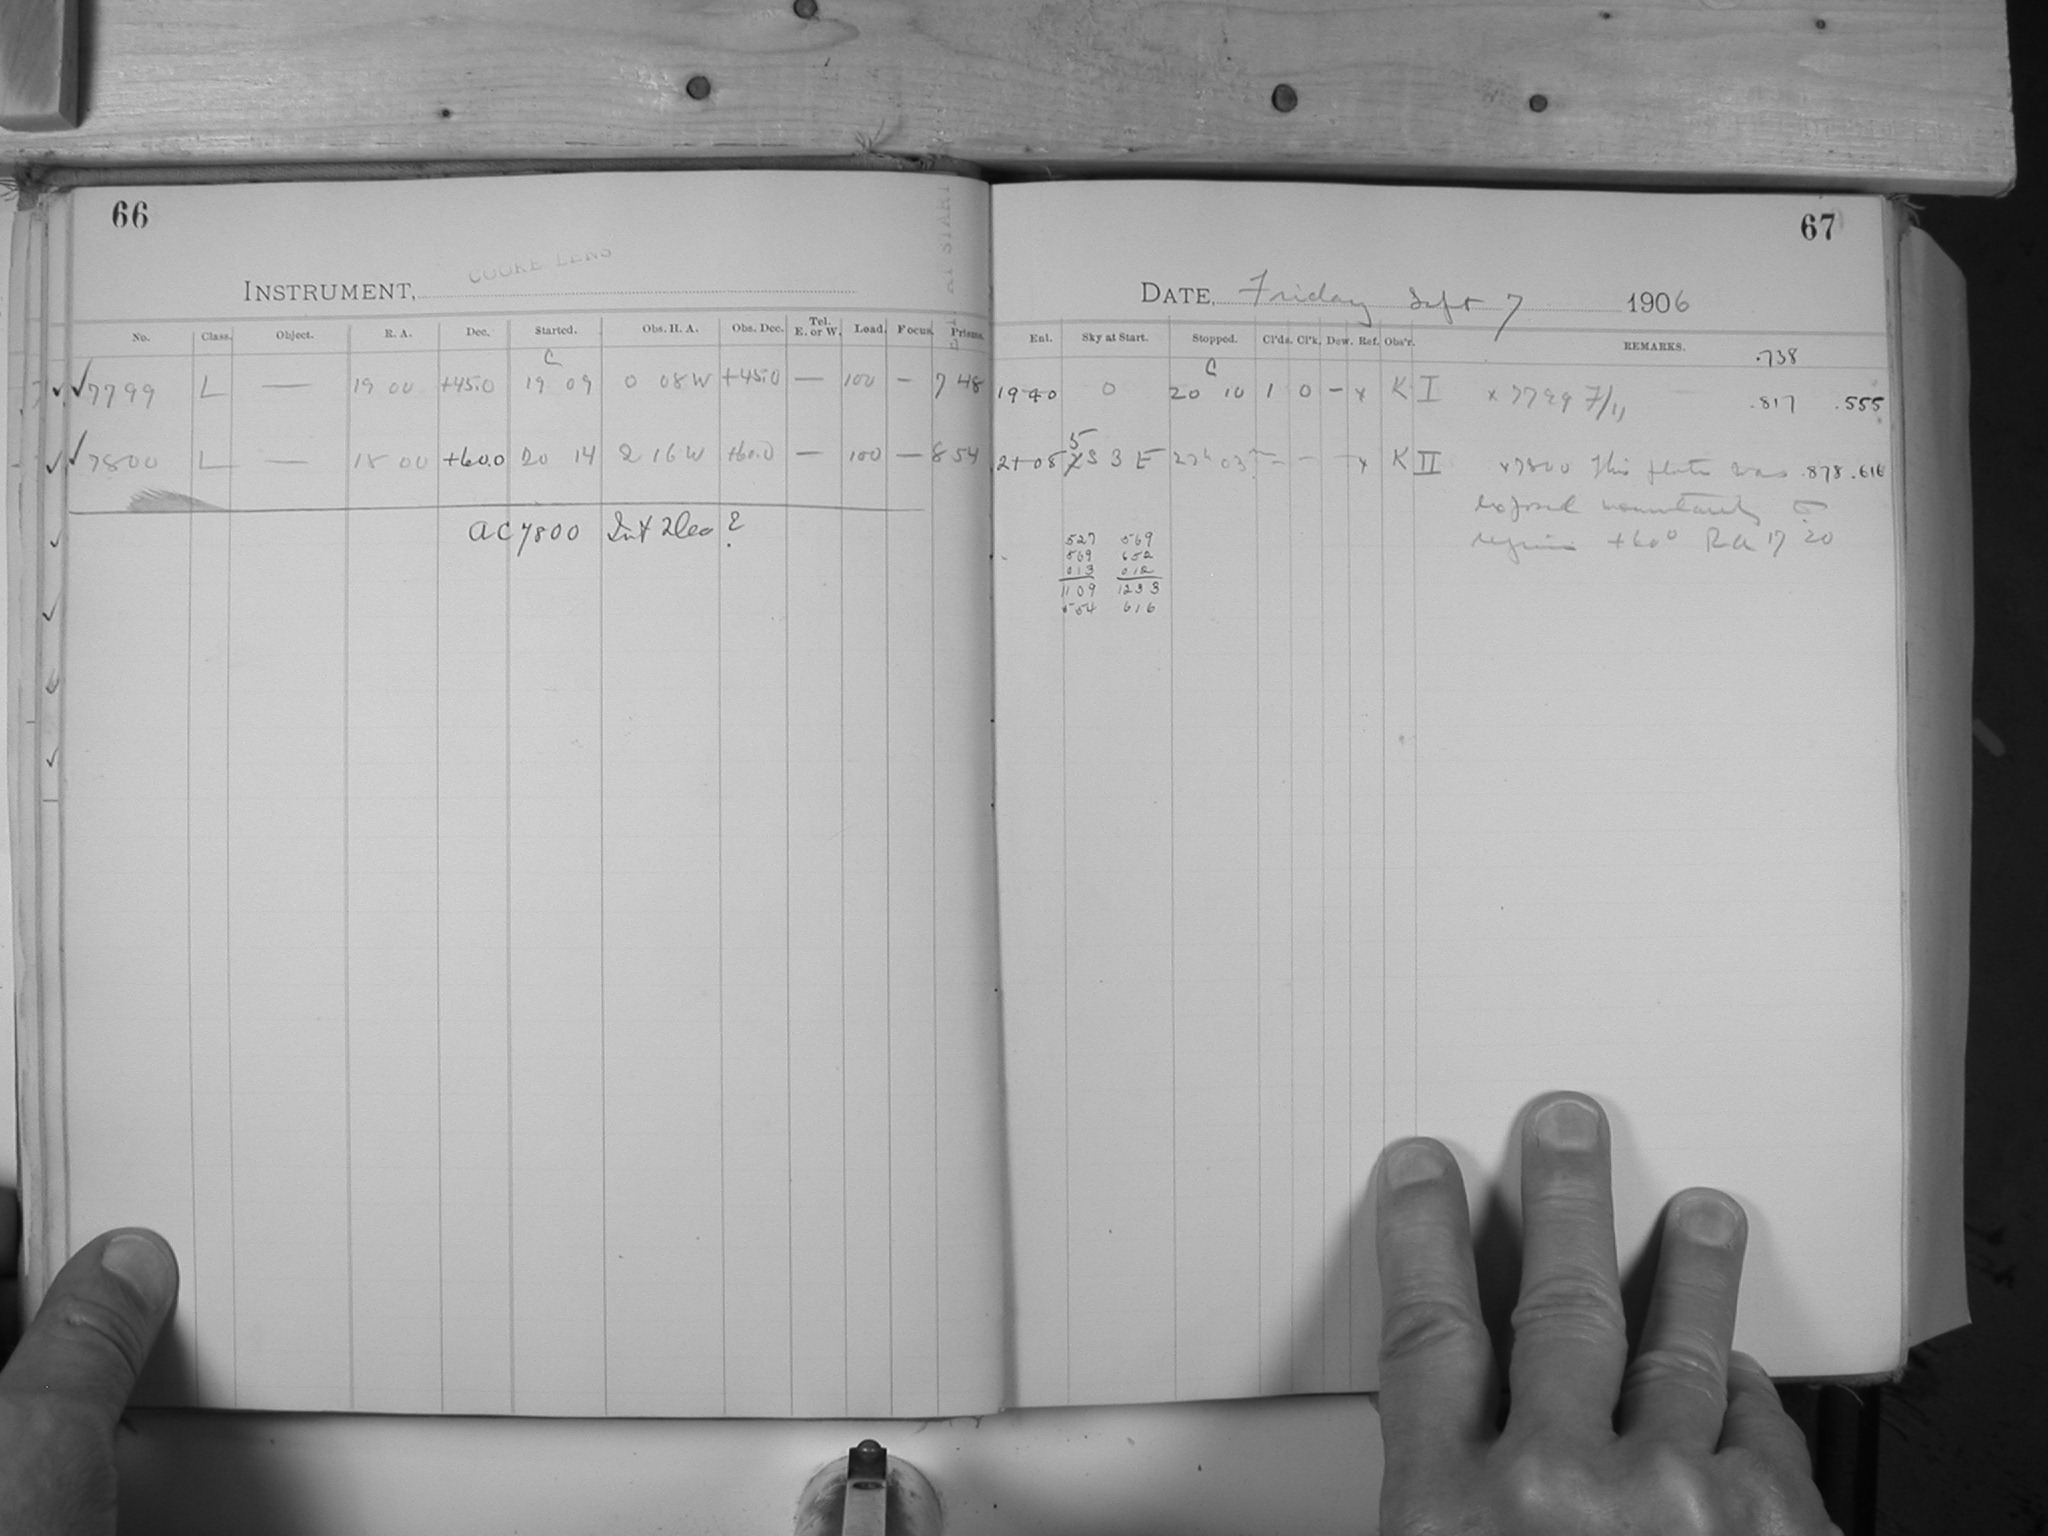 66
INSTRUMENT, COOKE LENS
No. Class. Object. R. A. Dec. Started. Obs. H. A. Obs. Dec. Tel. E. or W. Load. Focus. Prisms.
C
✓ ✓ 7799 L — 19 00 +45.0 19 09 0 08 W +45.0 — 100 — 7 48
✓ ✓ 7800 L — 18 00 +60.0 20 14 2 16 W +60.0 — 100 — 8 54
AC 7800 ?
67
DATE, Friday Sept 7 1906
Enl. Sky at Start. Stopped. Cl'ds. Cl'k. Dew. Ref. Obs'r. REMARKS.
C .738
19 40 0 20 10 1 0 — x K I x 7799 F/11 .817 .555
5
21 08 S 3 E 22h 03 — — — x K II x7800 This plate was .878 .616
exposed momentarily
region +60° RA 17 20
527 569
569 652
013 012
1109 1233
554 616